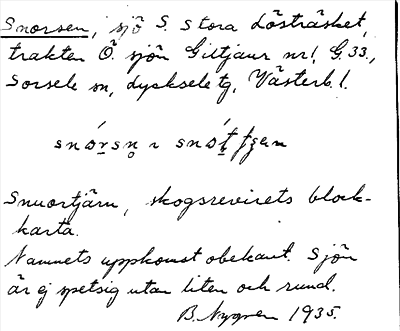 Snorsen, sjö S. Stora Lösträsket,
trakten Ö. sjön Giltjaur nr 1, G. 33,
Sorsele sn, Lycksele tg, Västerb. l.
snórsn̥ ı snót̯
Snuortjärn, skogsrevirets block-
karta.
Namnets uppkomst obekant. Sjön
är ej spetsig utan liten och rund.
B. Nygren 1935.